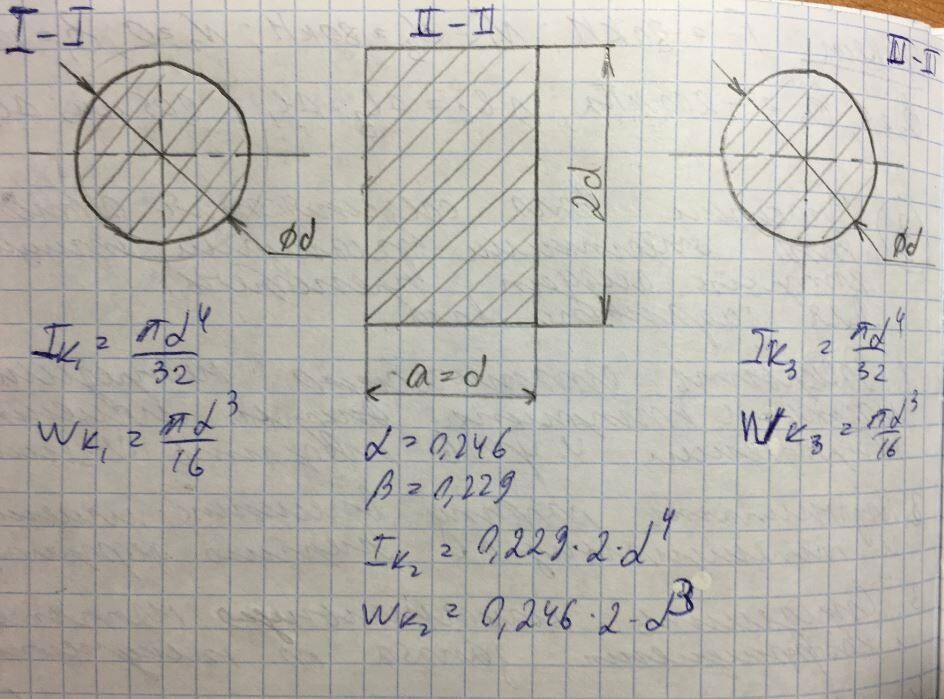 I-I
II-II
II-II
ød
2d
ød
a=d
I_K₁ = πd⁴/32
W_K₁ = πd³/16
α=0,246
β=0,229
I_K₂ = 0,229·2·d⁴
W_K₂ = 0,246·2·d³
I_K₃ = πd⁴/32
W_K₃ = πd³/16